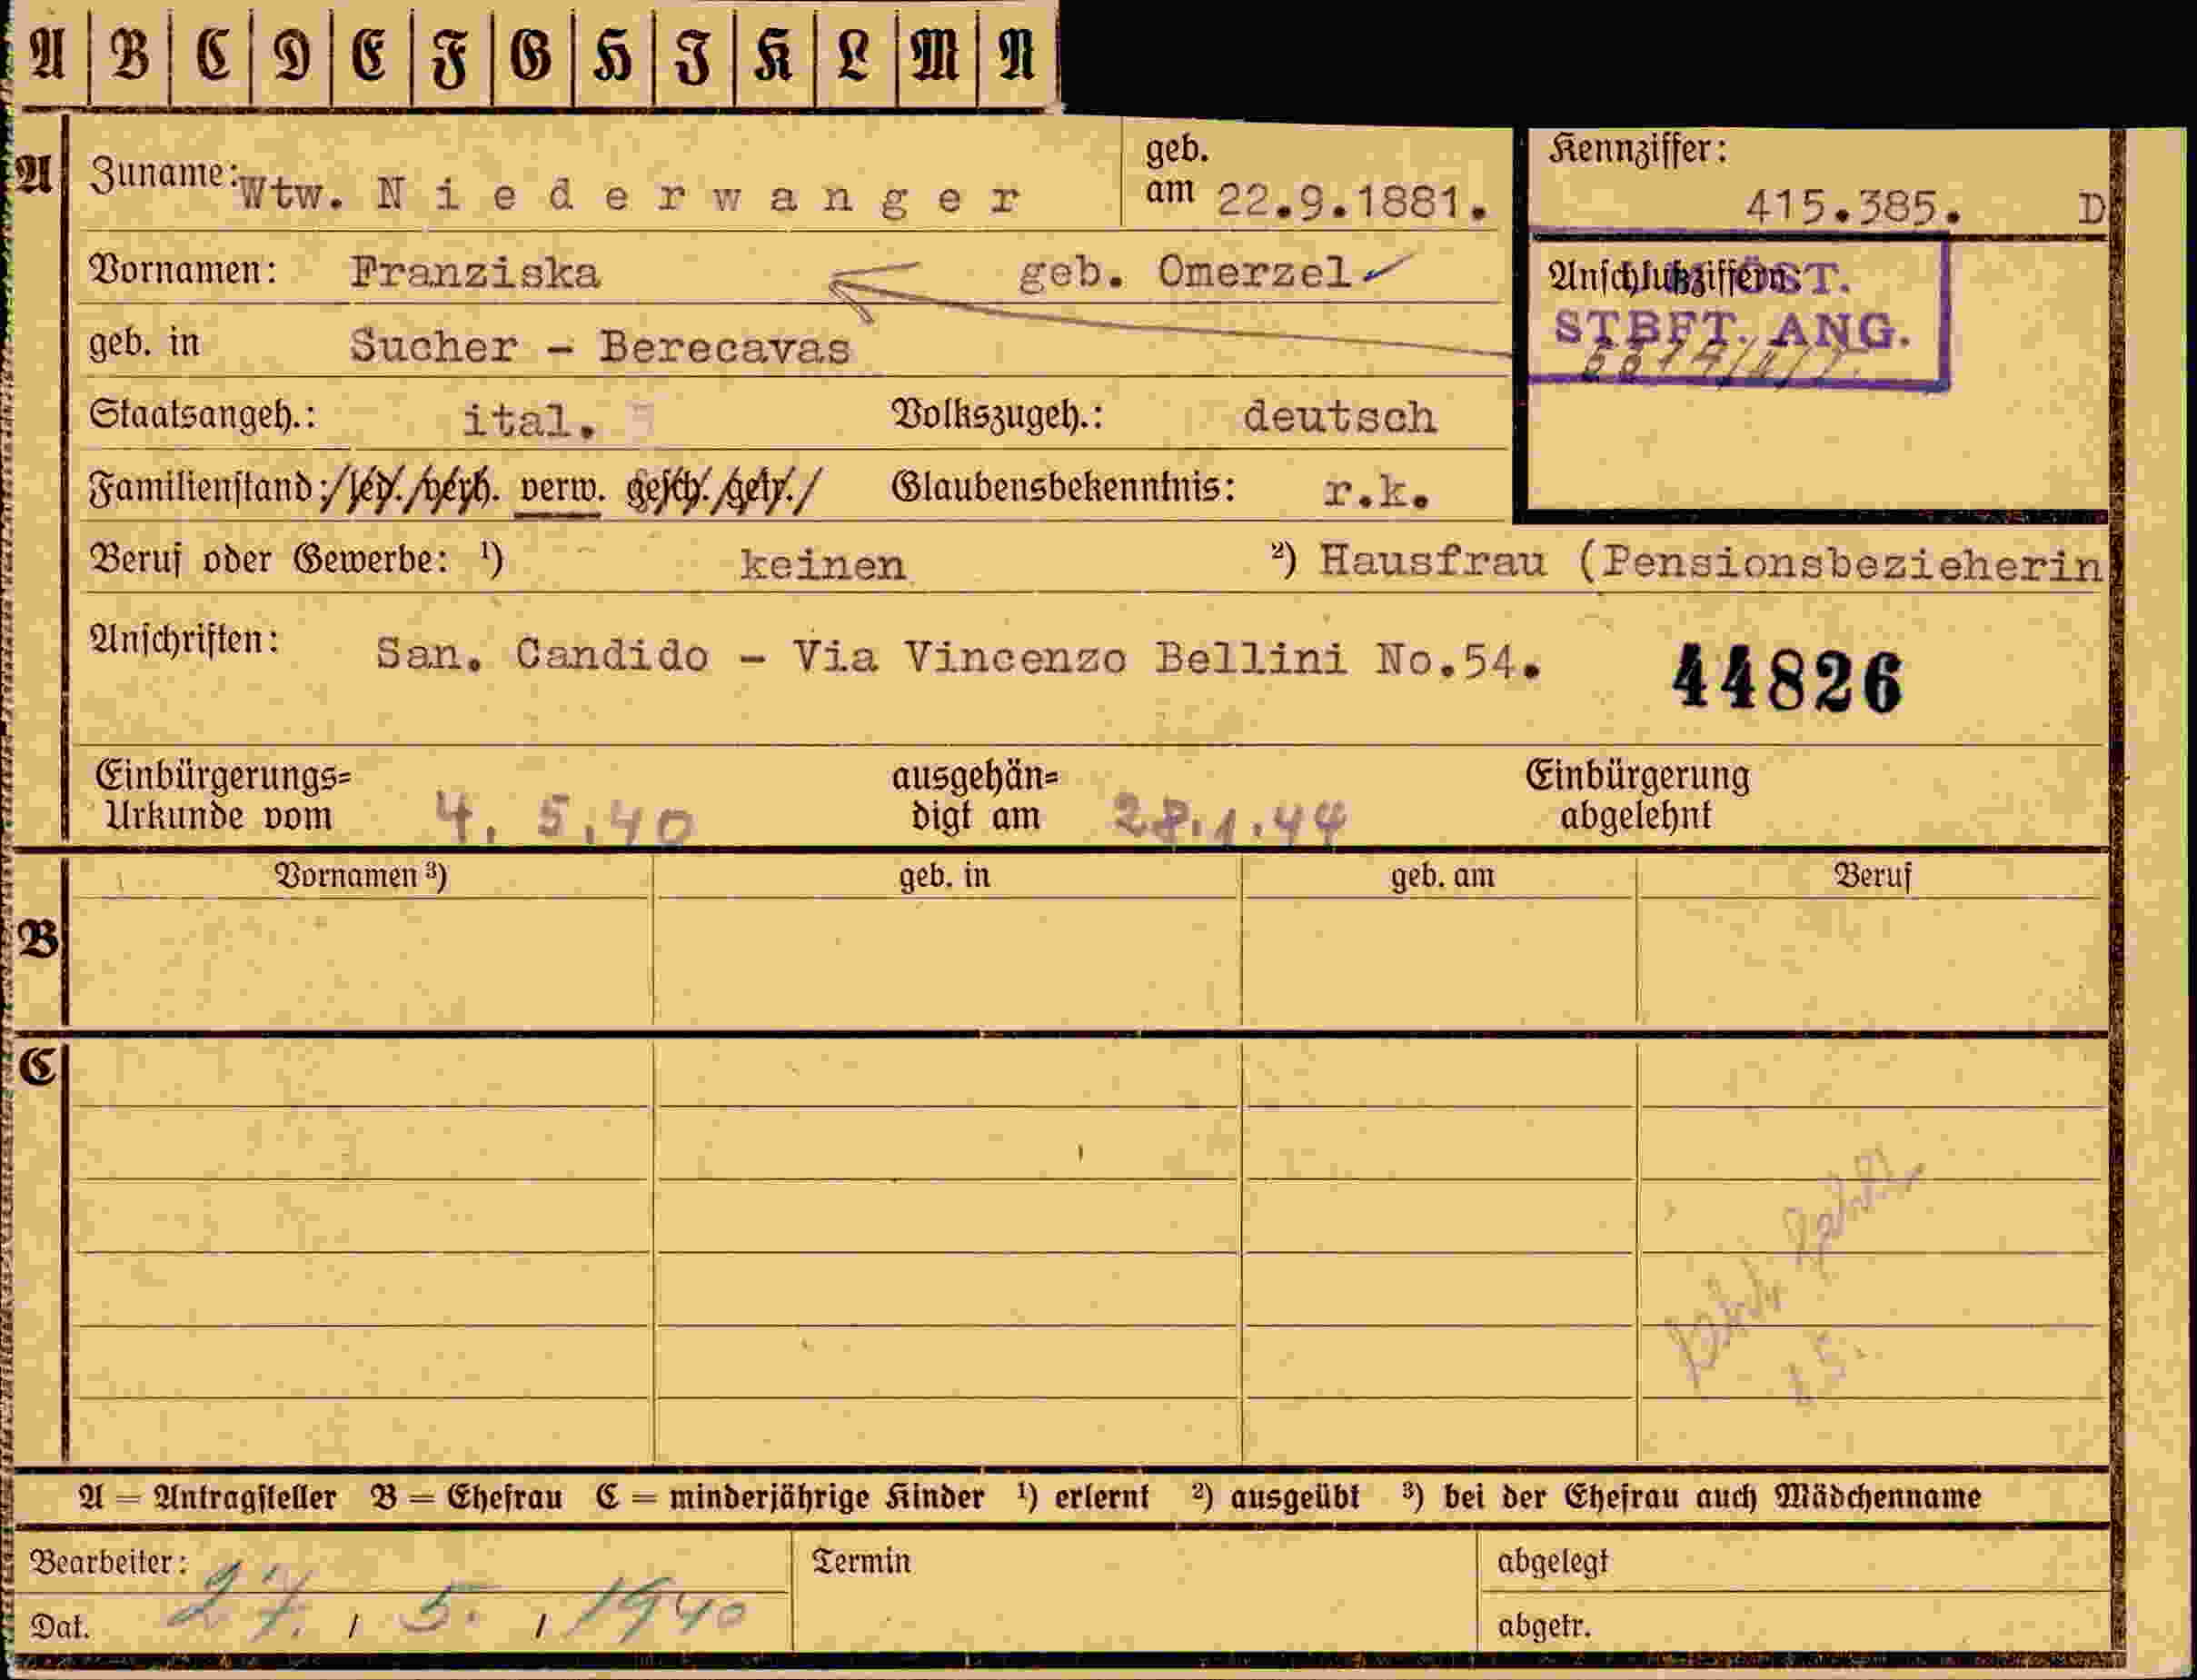 A B C D E F G H I K L M N
A Zuname: Wtw. Niederwanger geb. am 22.9.1881. Kennziffer: 415.385. D
Vornamen: Franziska geb. Omerzel Anschlußziffern: ÖST.
STBFT. ANG.
geb. in Sucher - Berecavas
Staatsangeh.: ital. Volkszugeh.: deutsch
Familienstand: /led./verh. verw. gesch./getr./ Glaubensbekenntnis: r.k.
Beruf oder Gewerbe: ¹) keinen ²) Hausfrau (Pensionsbezieherin
Anschriften: San. Candido - Via Vincenzo Bellini No.54. 44826
Einbürgerungs= ausgehän= Einbürgerung
Urkunde vom 4. 5.40 digt am 28.1.44 abgelehnt
Vornamen ³) geb. in geb. am Beruf
B
C
15.
A = Antragsteller B = Ehefrau C = minderjährige Kinder ¹) erlernt ²) ausgeübt ³) bei der Ehefrau auch Mädchenname
Bearbeiter: Termin abgelegt
Dat. 27. / 5. / 1940 abgetr.